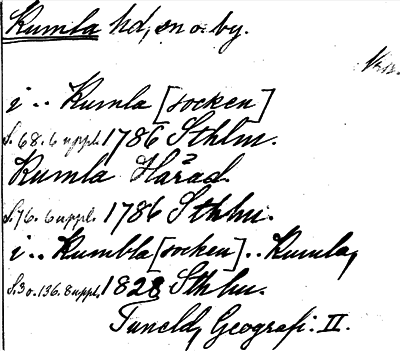 Kumla hd, sn o. by.
i .. Kumla [socken]
S. 68. 6 uppl. 1786 Sthlm.
Kumla Härad.
S. 76. 6 uppl. 1786 Sthlm.
i .. Kumbla [socken] .. Kumla,
S. 30. 136. 8 uppl. 1828 Sthlm.
Tuneld, Geografi. II.